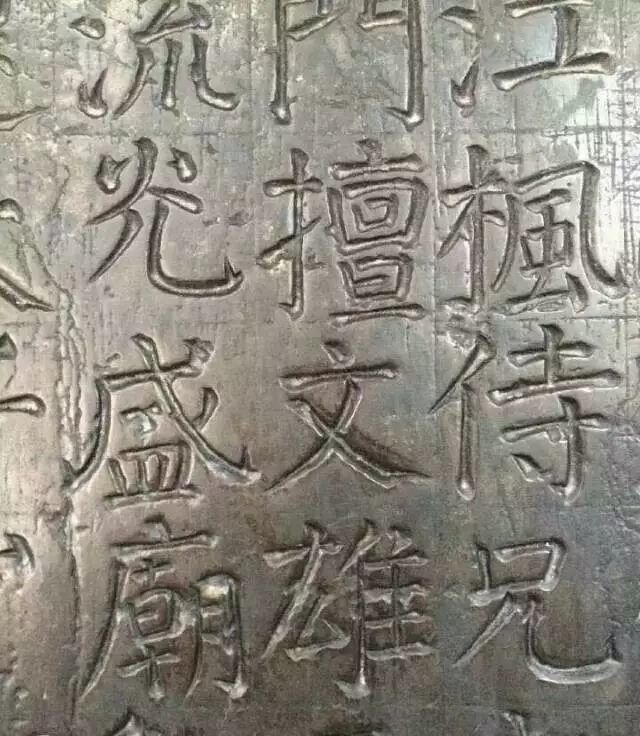 江楓侍兄
門擅文雄
流光盛廟